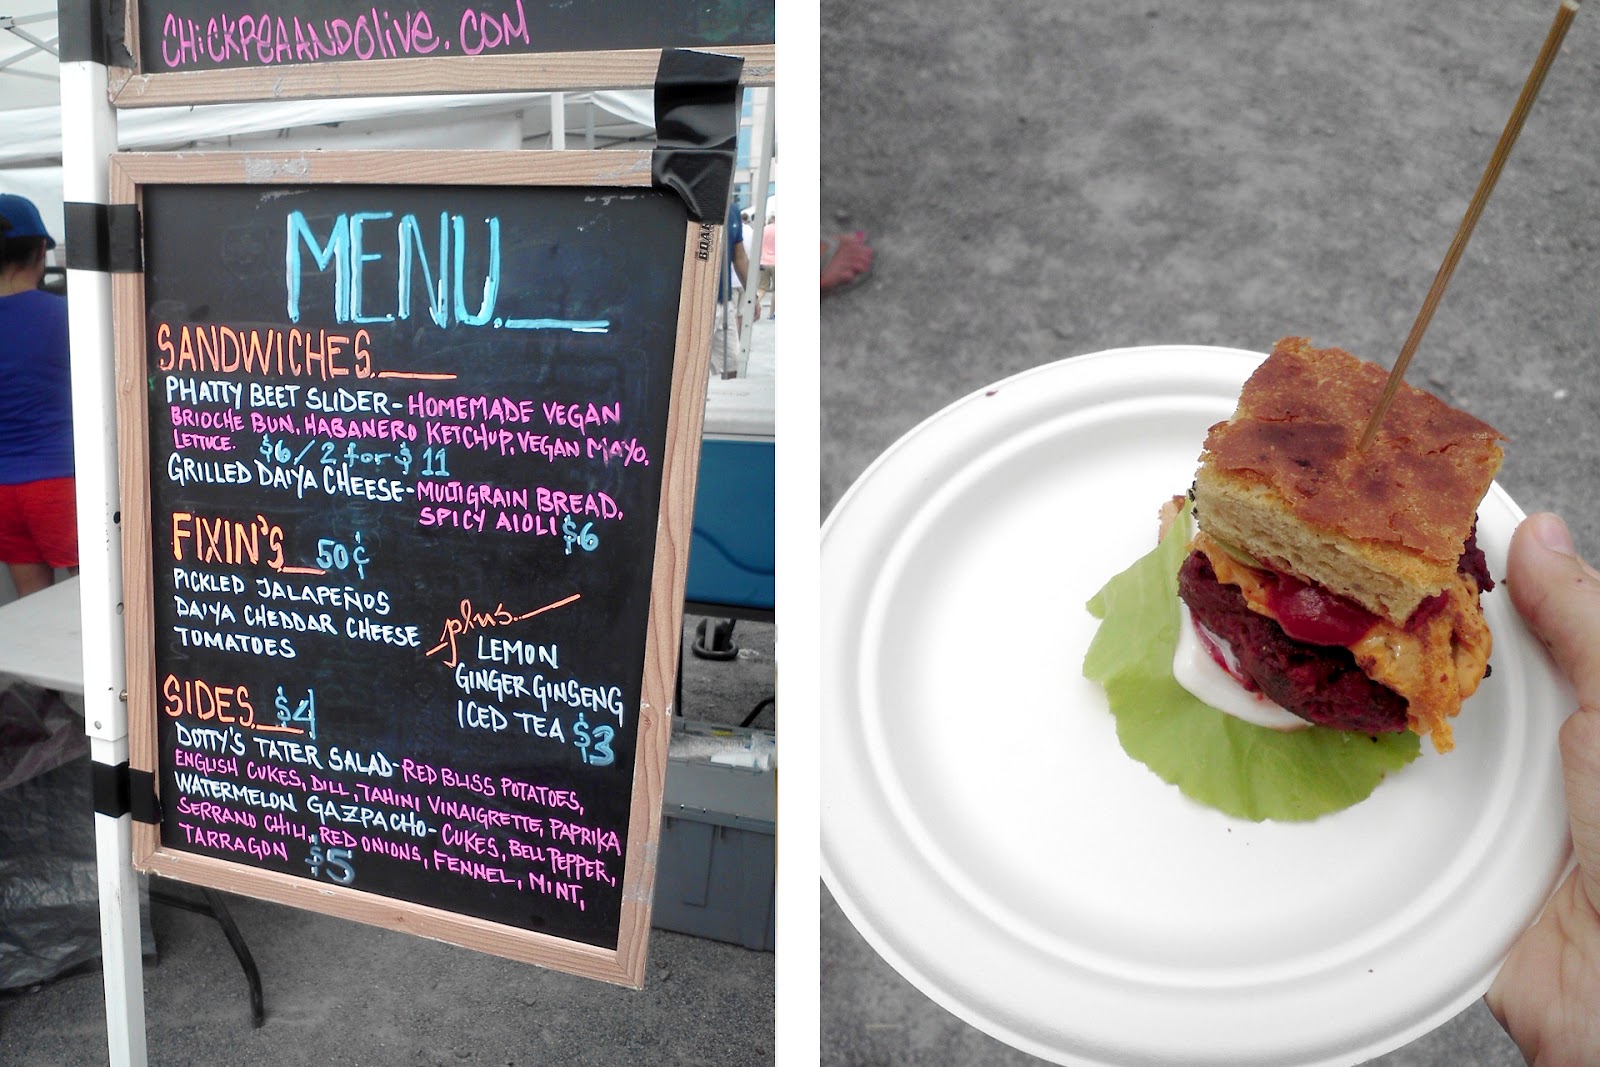 CHICKPEAANDOLIVE.COM
MENU
SANDWICHES
PHATTY BEET SLIDER- HOMEMADE VEGAN
BRIOCHE BUN, HABANERO KETCHUP, VEGAN MAYO,
LETTUCE. $6/2 for $11
GRILLED DAIYA CHEESE- MULTIGRAIN BREAD,
SPICY AIOLI $6
FIXIN'S 50¢
PICKLED JALAPEÑOS
DAIYA CHEDDAR CHEESE
TOMATOES
plus
LEMON
GINGER GINSENG
ICED TEA $3
SIDES $4
DOTTY'S TATER SALAD- RED BLISS POTATOES,
ENGLISH CUKES, DILL, TAHINI VINAIGRETTE, PAPRIKA
WATERMELON GAZPACHO- CUKES, BELL PEPPER,
SERRANO CHILI, RED ONIONS, FENNEL, MINT,
TARRAGON $5